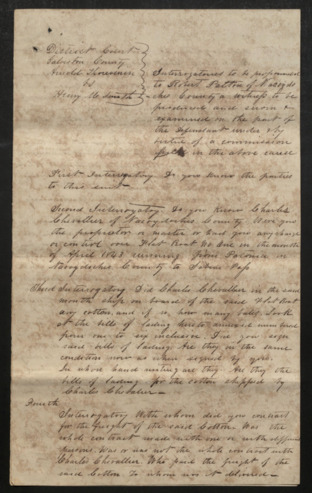 District Court
Galveston County
vs
Henry
Interrogatories to be propounded
to Robert Patton of Nacogdo
ches County a witness to be
produced and sworn &
examined on the part of
the Defendant under & by
virtue of a commission
in the above cause
First Interrogatory. Do you know the parties
to this suit
Second Interrogatory. Do you know Charles
Chevallier of Nacogdoches County. Were you
the proprietor or master or had you any charge
or control over Flat Boat No. One in the month
of April 1843 running from Patonia in
Nacogdoches County to Sabine Pass
Third Interrogatory Did Charles Chevallier in the same
month ship on board of the said Flat Boat
any cotton, and if so, how many bales. Look
at the bills of lading hereto annexed numbered
from one to six inclusive. Did you sign
said bills of lading. Are they in the same
condition now as when signed by you.
In whose hand writing are they. Are they the
bills of lading for the cotton shipped by
Charles Chevallier
Fourth
Interrogatory With whom did you contract
for the freight of the said Cotton. Was the
whole contract made with one or with different
persons. Was or was not the whole contract with
Charles Chevallier. Who paid the freight of the
said Cotton. To whom was it delivered